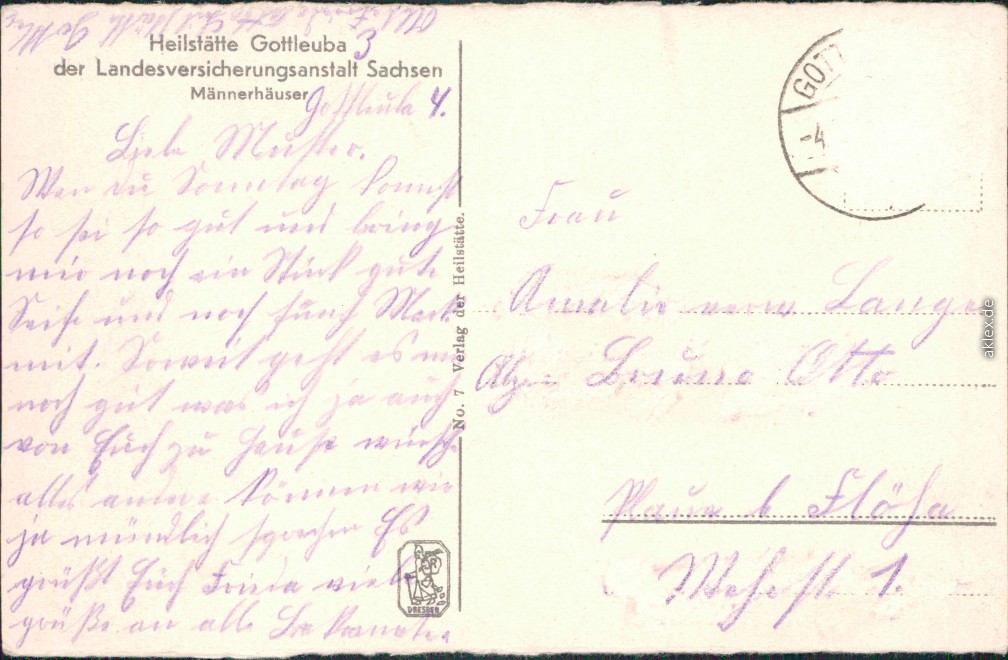 Heilstätte Gottleuba
der Landesversicherungsanstalt Sachsen
Männerhäuser
Gottleuba 4.
Liebe Mutter.
Wen du Sonntag kommst
so sei so gut und bring
mir noch ein Stück gute
Seife und noch fünf Mark
mit. Soweit geht es mir
noch gut was ich ja auch
von Euch zu Hause wünsche
alles andere können wir
ja mündlich sprechen Es
grüßt Euch Frieda viele
grüße an alle Bekannte.
DRESDEN
No. 7 Verlag der Heilstätte.
GOTT
-4
Frau
Amalie verw Lange
Abz. Bruno Otto
Plaue b Flöha
1.
aklex.de